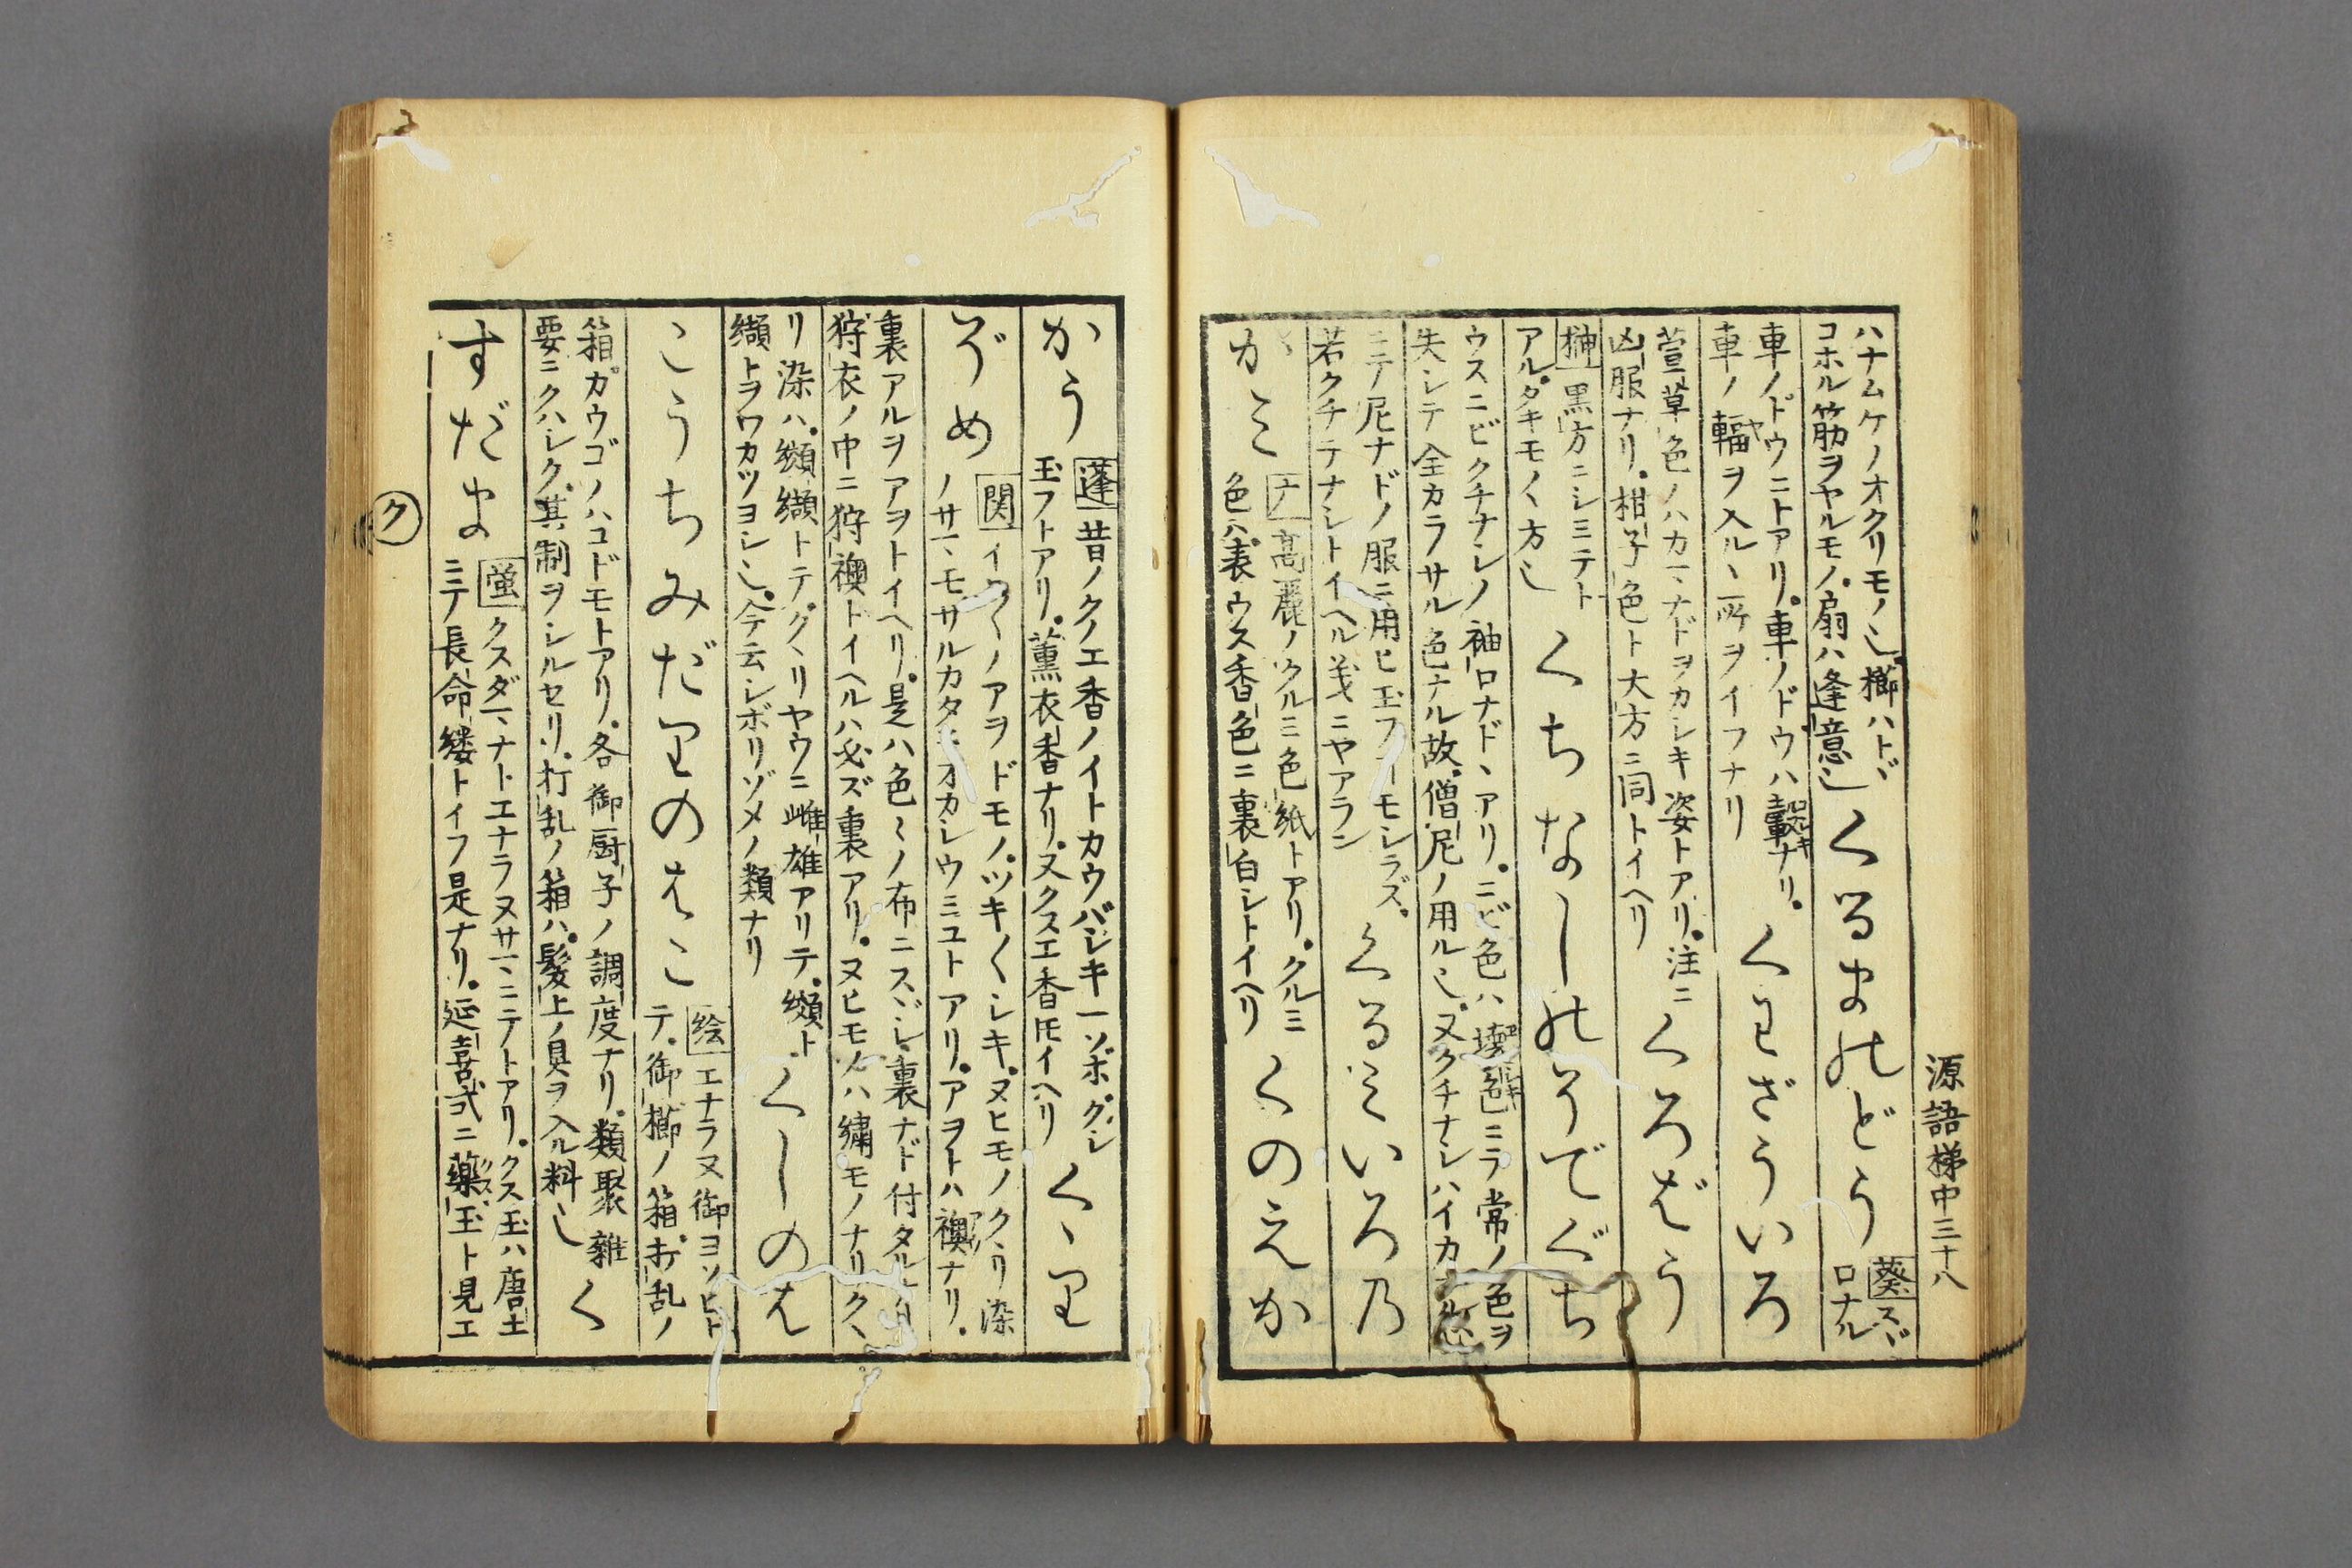 源語梯中三十八
ハナムケノオクリモノ也櫛ハトヾ
コホル筋ヲヤルモノ扇ハ逢意也
くるまのどう
葵スヾ
ロナル
車ノドウニトアリ車ノドウハ轂ナリ
車ノ輻ヲ入ルヽ所ヲイフナリ
くわざういろ
萱草色ノハカマナドヲカシキ姿トアリ注ニ
凶服ナリ柑子色ト大方ニ同トイヘリ
くろばう
榊黒方ニシミテト
アルタキモノヽ方也
くちなしのそでぐち
ウスニビクチナシノ袖口ナドヽアリニビ色ハ
失シテ全カラサル色ナル故僧尼ノ用ル也又クチナシハイカ
ニテノ尼ナドノ服ニ用ヒ玉フ
若クチテナシトイヘル義ニヤアラン
くるみいろの
かみ
高麗ノクルミ色紙トアリクルミ
色ハ表ウス香色ニ裏白シトイヘリ
くのえか
かう
蓬昔ノクノエ香ノイトカウバシキ一ソボグシ
玉フトアリ薫衣香ナリ又クスエ香トモイヘリ
くゝり
ぞめ
関イロ〳〵ノアヲドモノツキ〳〵シキヌヒモノクヽリ染
ノサマモサルカタニオカシウミユトアリアヲトハ襖ナリ
裏アルヲアヲトイヘリ是ハ色〻ノ布ニスヾシ裏ナド付タル
狩衣ノ中ニ狩襖トイヘルハ必ズ裏アリヌヒモノハ繍モノナリクヽ
リ染ハ纐纈トテクヽリヤウニ雌雄アリテ纐ト
纈トヲワカツヨシ也今云シボリゾメノ類ナリ
くしのは
こうちみだりのはこ
絵エナラヌ御ヨソヒト
テ御櫛ノ箱打乱ノ
箱カウゴノハコドモトアリ各御厨子ノ調度ナリ類聚雑
要ニクハシク其制ヲシルセリ打乱ノ箱ハ髪上ノ具ヲ入ル料也
く
すだま
蛍クスダマナトエナラヌサマニテトアリクス玉ハ唐土
ニテ長命縷トイフ是ナリ延喜式ニ薬玉ト見エ
ク